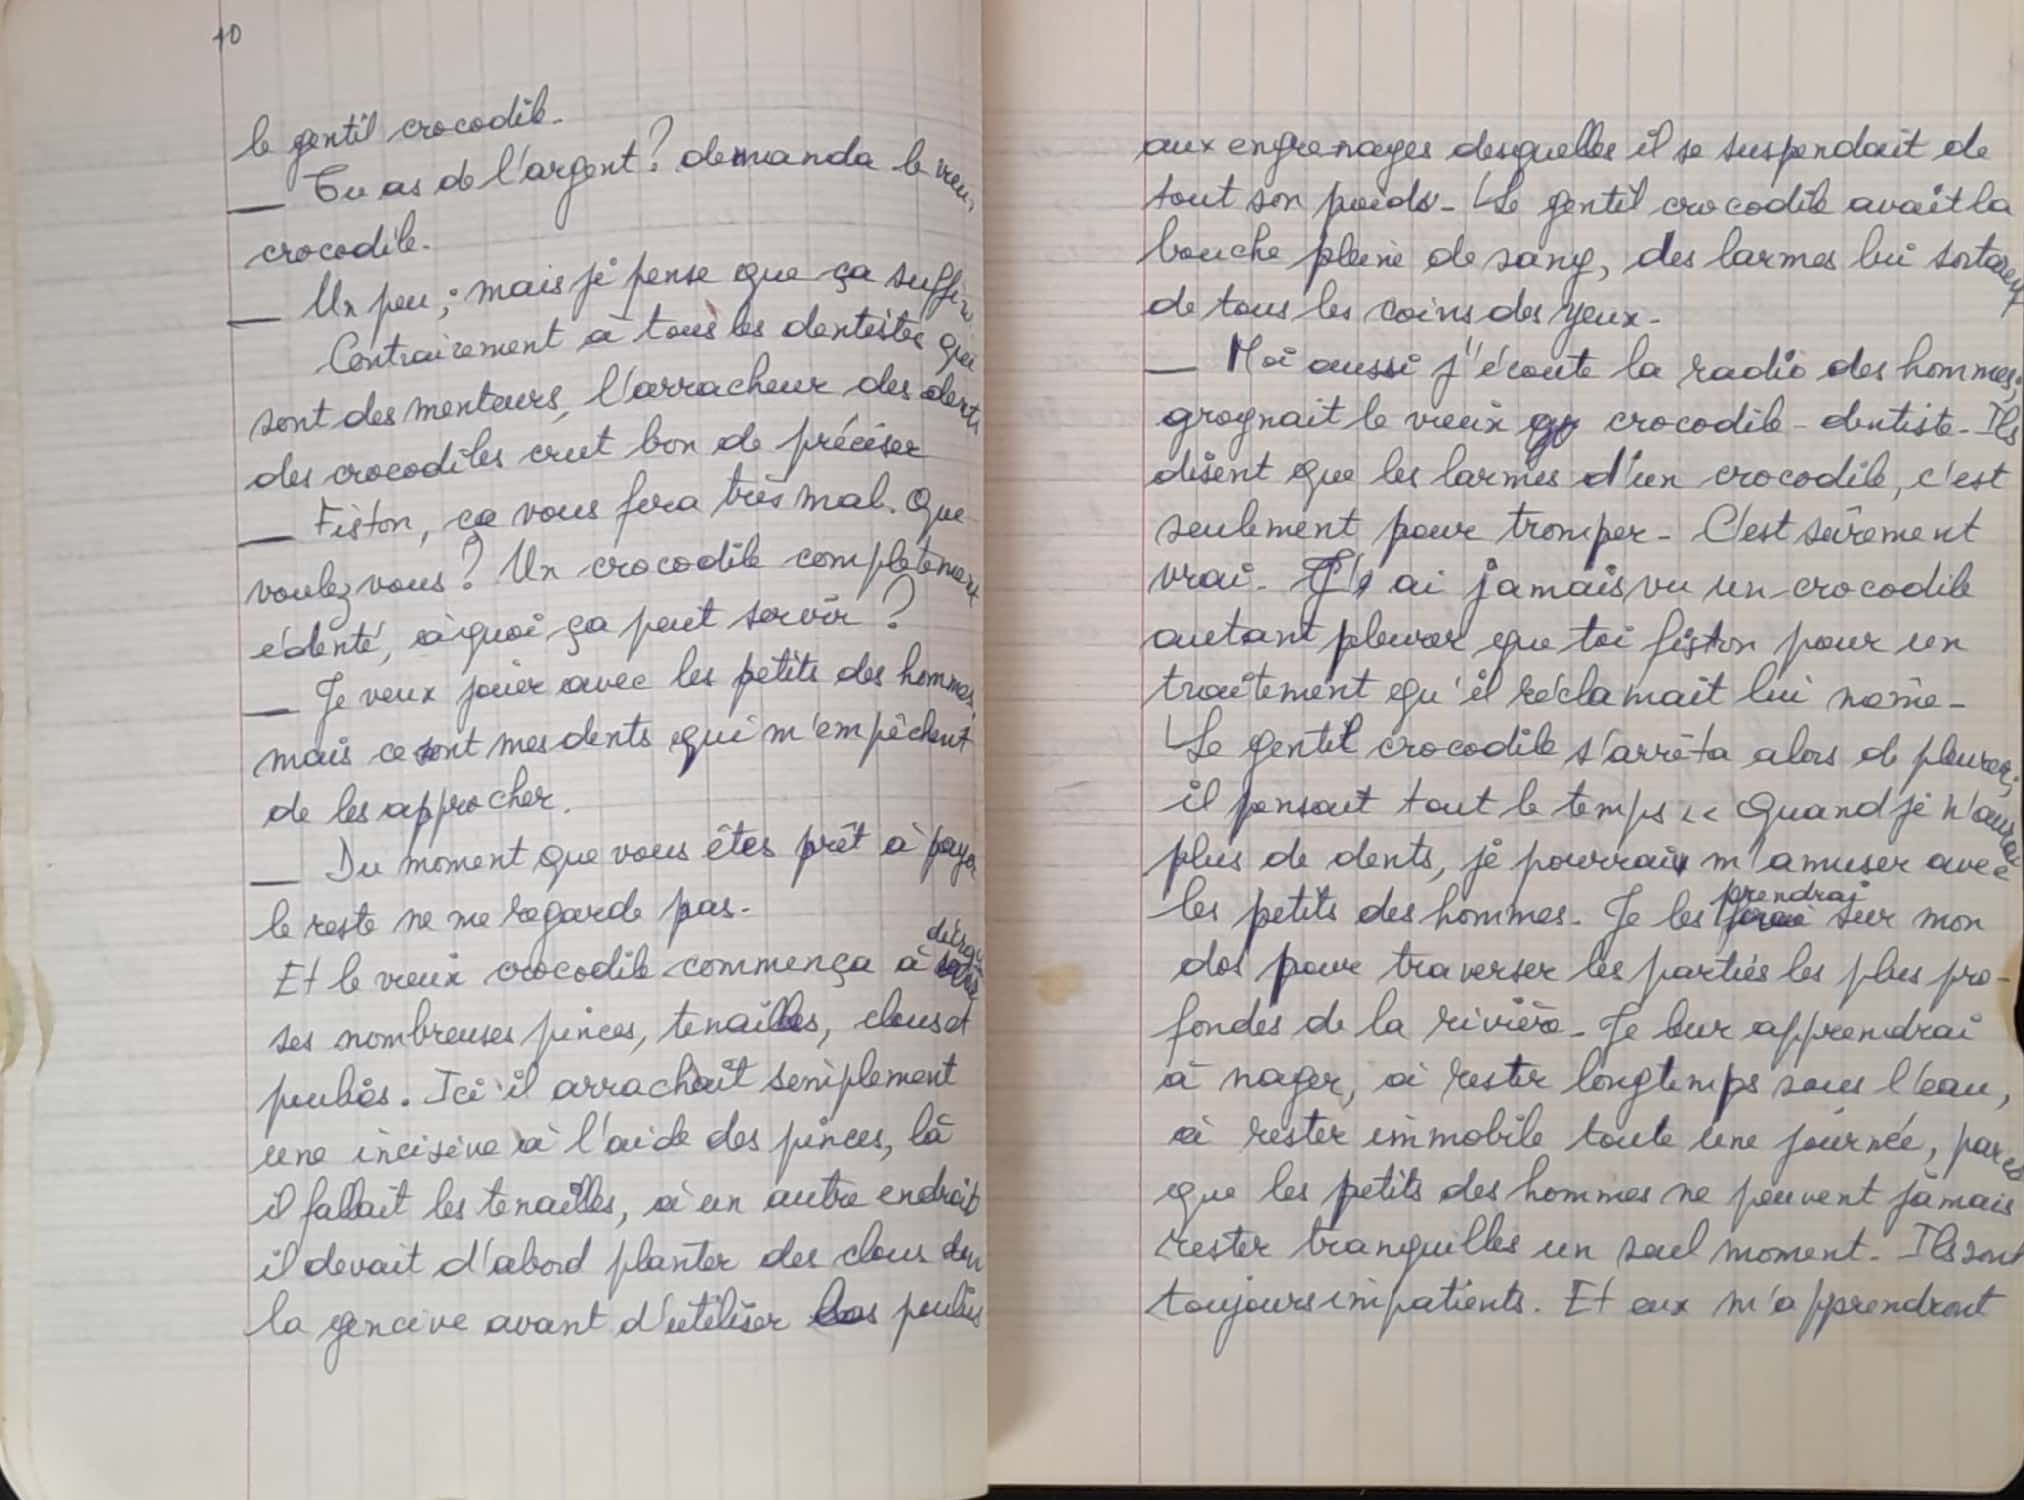 10
le gentil crocodile.
— Tu as de l'argent ? demanda le vieux
crocodile.
— Un peu ; mais je pense que ça suffira
Contrairement à tous les dentistes qui
sont des menteurs, l'arracheur des dents
des crocodiles crut bon de préciser
— Fiston, ça vous fera très mal. Que
voulez vous ? Un crocodile complètement
édenté, à quoi ça peut servir ?
— Je veux jouer avec les petits des hommes
mais ce sont mes dents qui m'empêchent
de les approcher.
— Du moment que vous êtes prêt à payer
le reste ne me regarde pas.
Et le vieux crocodile commença à
ses nombreuses pinces, tenailles, clous et
poulies. Ici il arrachait simplement
une incisive à l'aide des pinces, là
il fallait les tenailles, à un autre endroit
il devait d'abord planter des clous dans
la gencive avant d'utiliser les poulies
aux engrenages desquelles il se suspendait de
tout son poids. Le gentil crocodile avait la
bouche pleine de sang, des larmes lui sortaient
de tous les coins des yeux.
— Moi aussi j'écoute la radio des hommes,
grognait le vieux crocodile-dentiste. Ils
disent que les larmes d'un crocodile, c'est
seulement pour tromper. C'est sûrement
vrai. J'ai jamais vu un crocodile
autant pleurer que toi fiston pour un
traitement qu'il réclamait lui même.
Le gentil crocodile s'arrêta alors de pleurer,
il pensait tout le temps << Quand je n'aurai
plus de dents, je pourrais m'amuser avec
les petits des hommes. Je les prendrai sur mon
dos pour traverser les parties les plus pro-
fondes de la rivière. Je leur apprendrai
à nager, à rester longtemps sous l'eau,
à rester immobile toute une journée, parce
que les petits des hommes ne peuvent jamais
rester tranquilles un seul moment. Ils sont
toujours impatients. Et eux m'apprendront